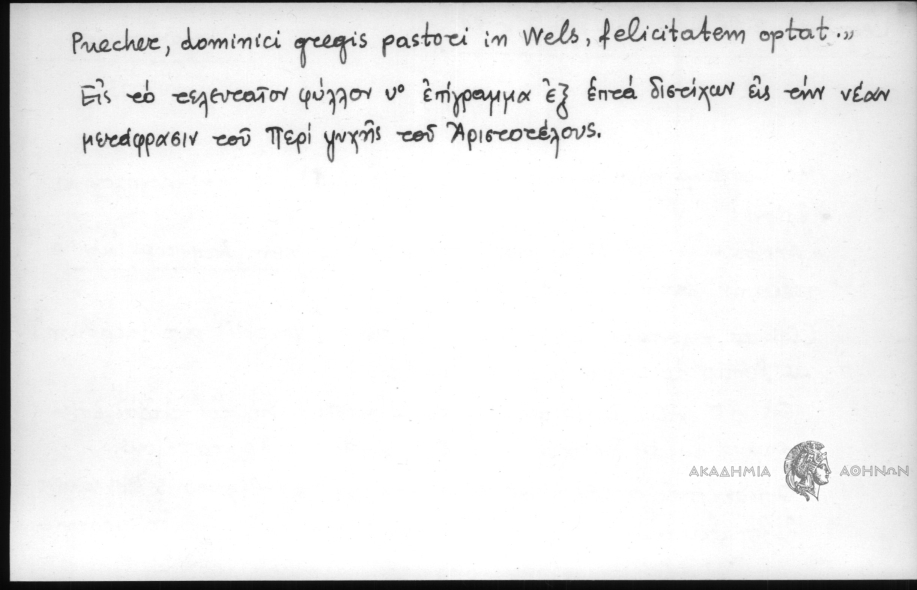 Puecher, dominici gregis pastori in Wels, felicitatem optat.»
Εἰς τό τελευταῖον φύλλον νο ἐπίγραμμα ἐξ ἑπτά διστίχων εἰς τήν νέαν
μετάφρασιν τοῦ Περί ψυχῆς τοῦ Ἀριστοτέλους.
ΑΚΑΔΗΜΙΑ ΑΘΗΝΩΝ